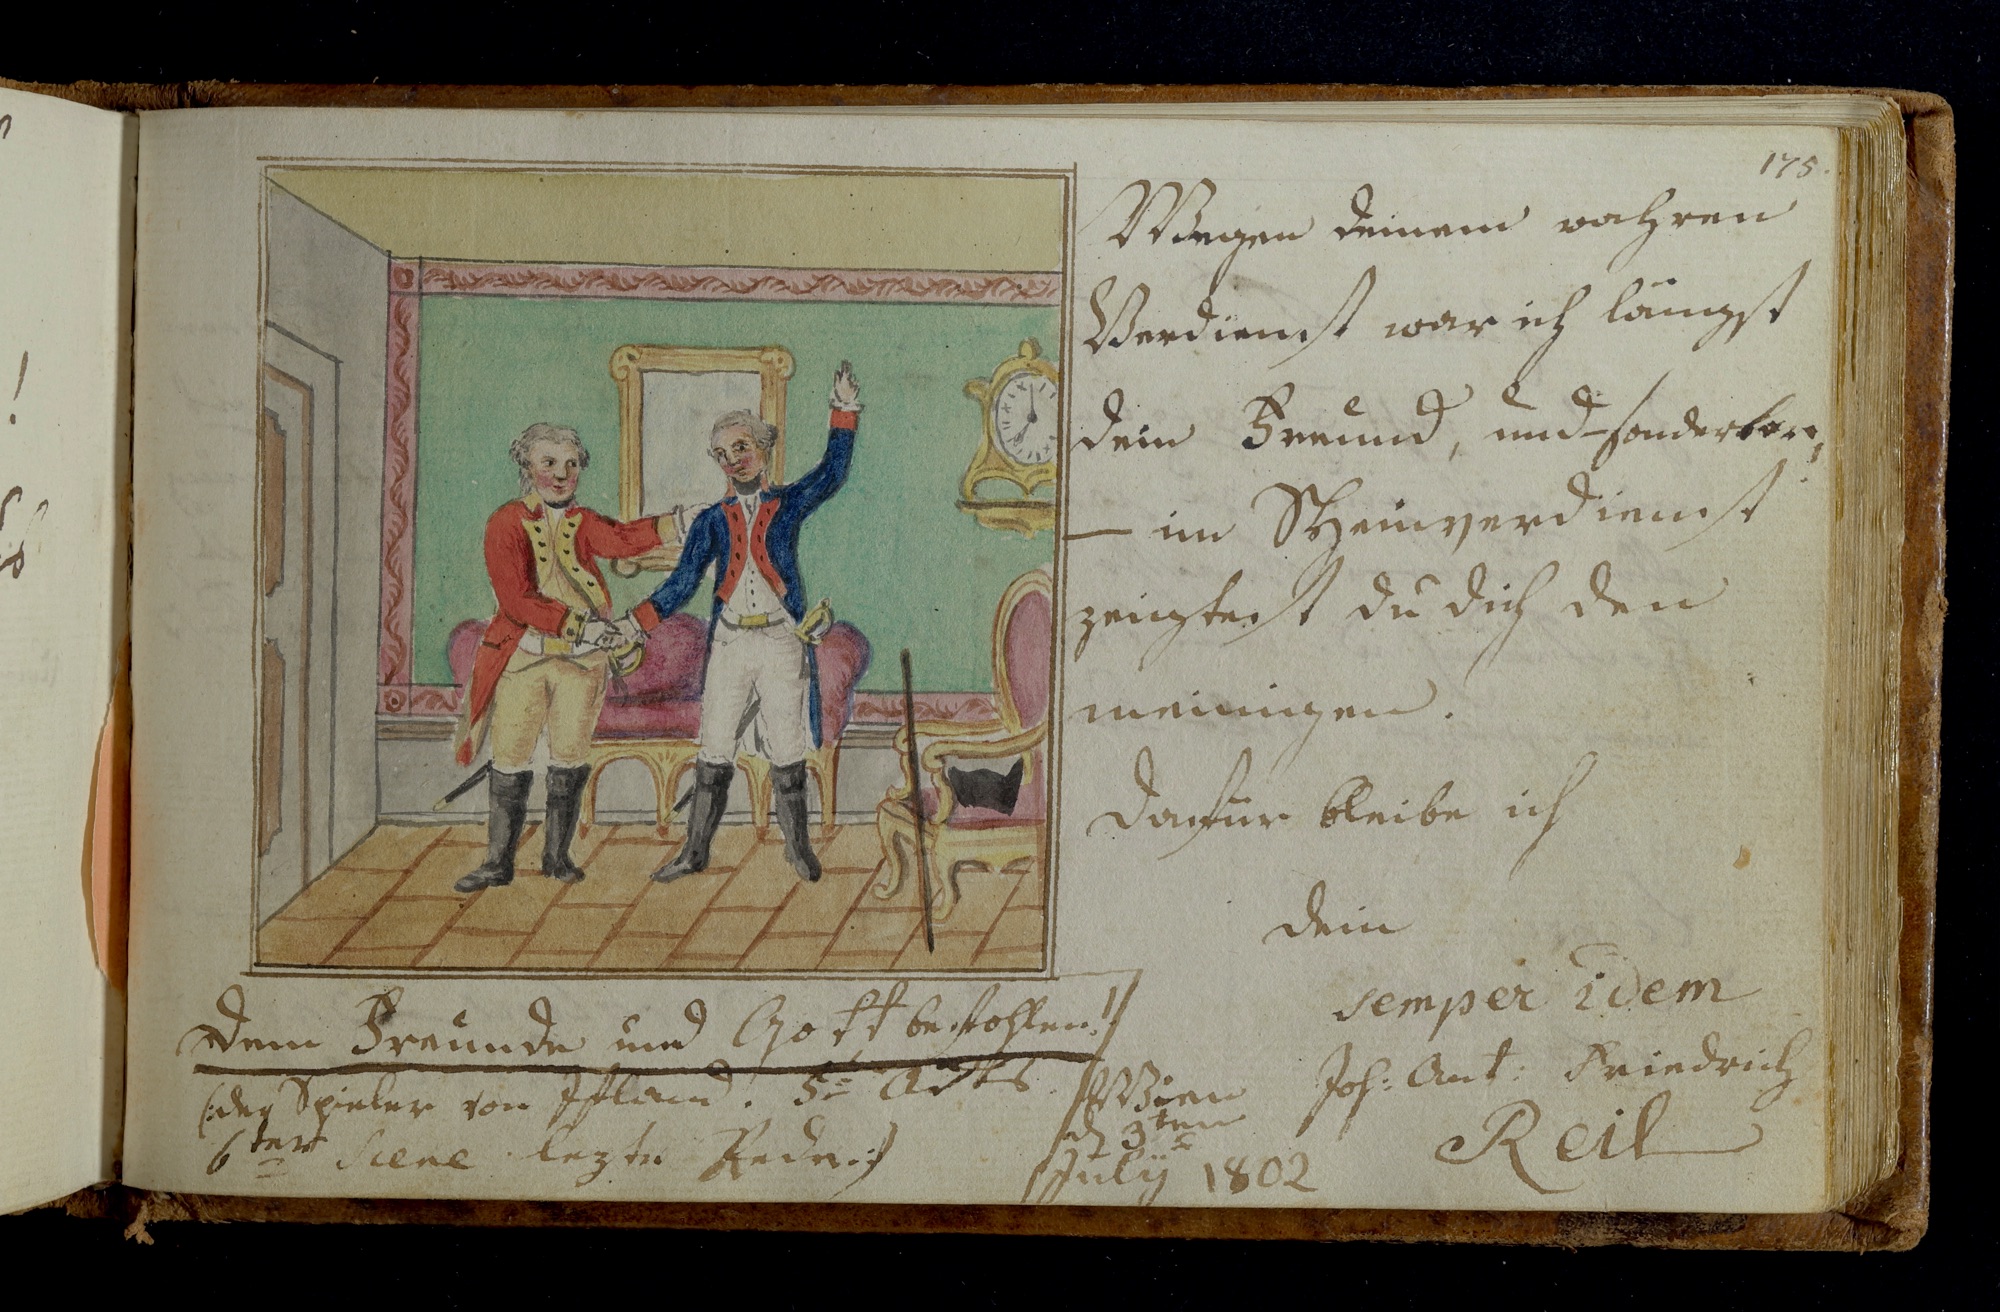 175.
Wegen deinem wahren
Verdienst war ich längst
dein Freund, und – sonderbar,
– im Scheinverdienst
zeigtest du dich den
meinigen.
Dafür bleibe ich
dein
semper idem
Joh: Ant: Friedrich
Reil
Dem Freunde und Gott befohlen!
(:der Spieler von Iffland. 5n Ackts
6ter Scene lezte Rede:)
Wien
d 3ten
July 1802